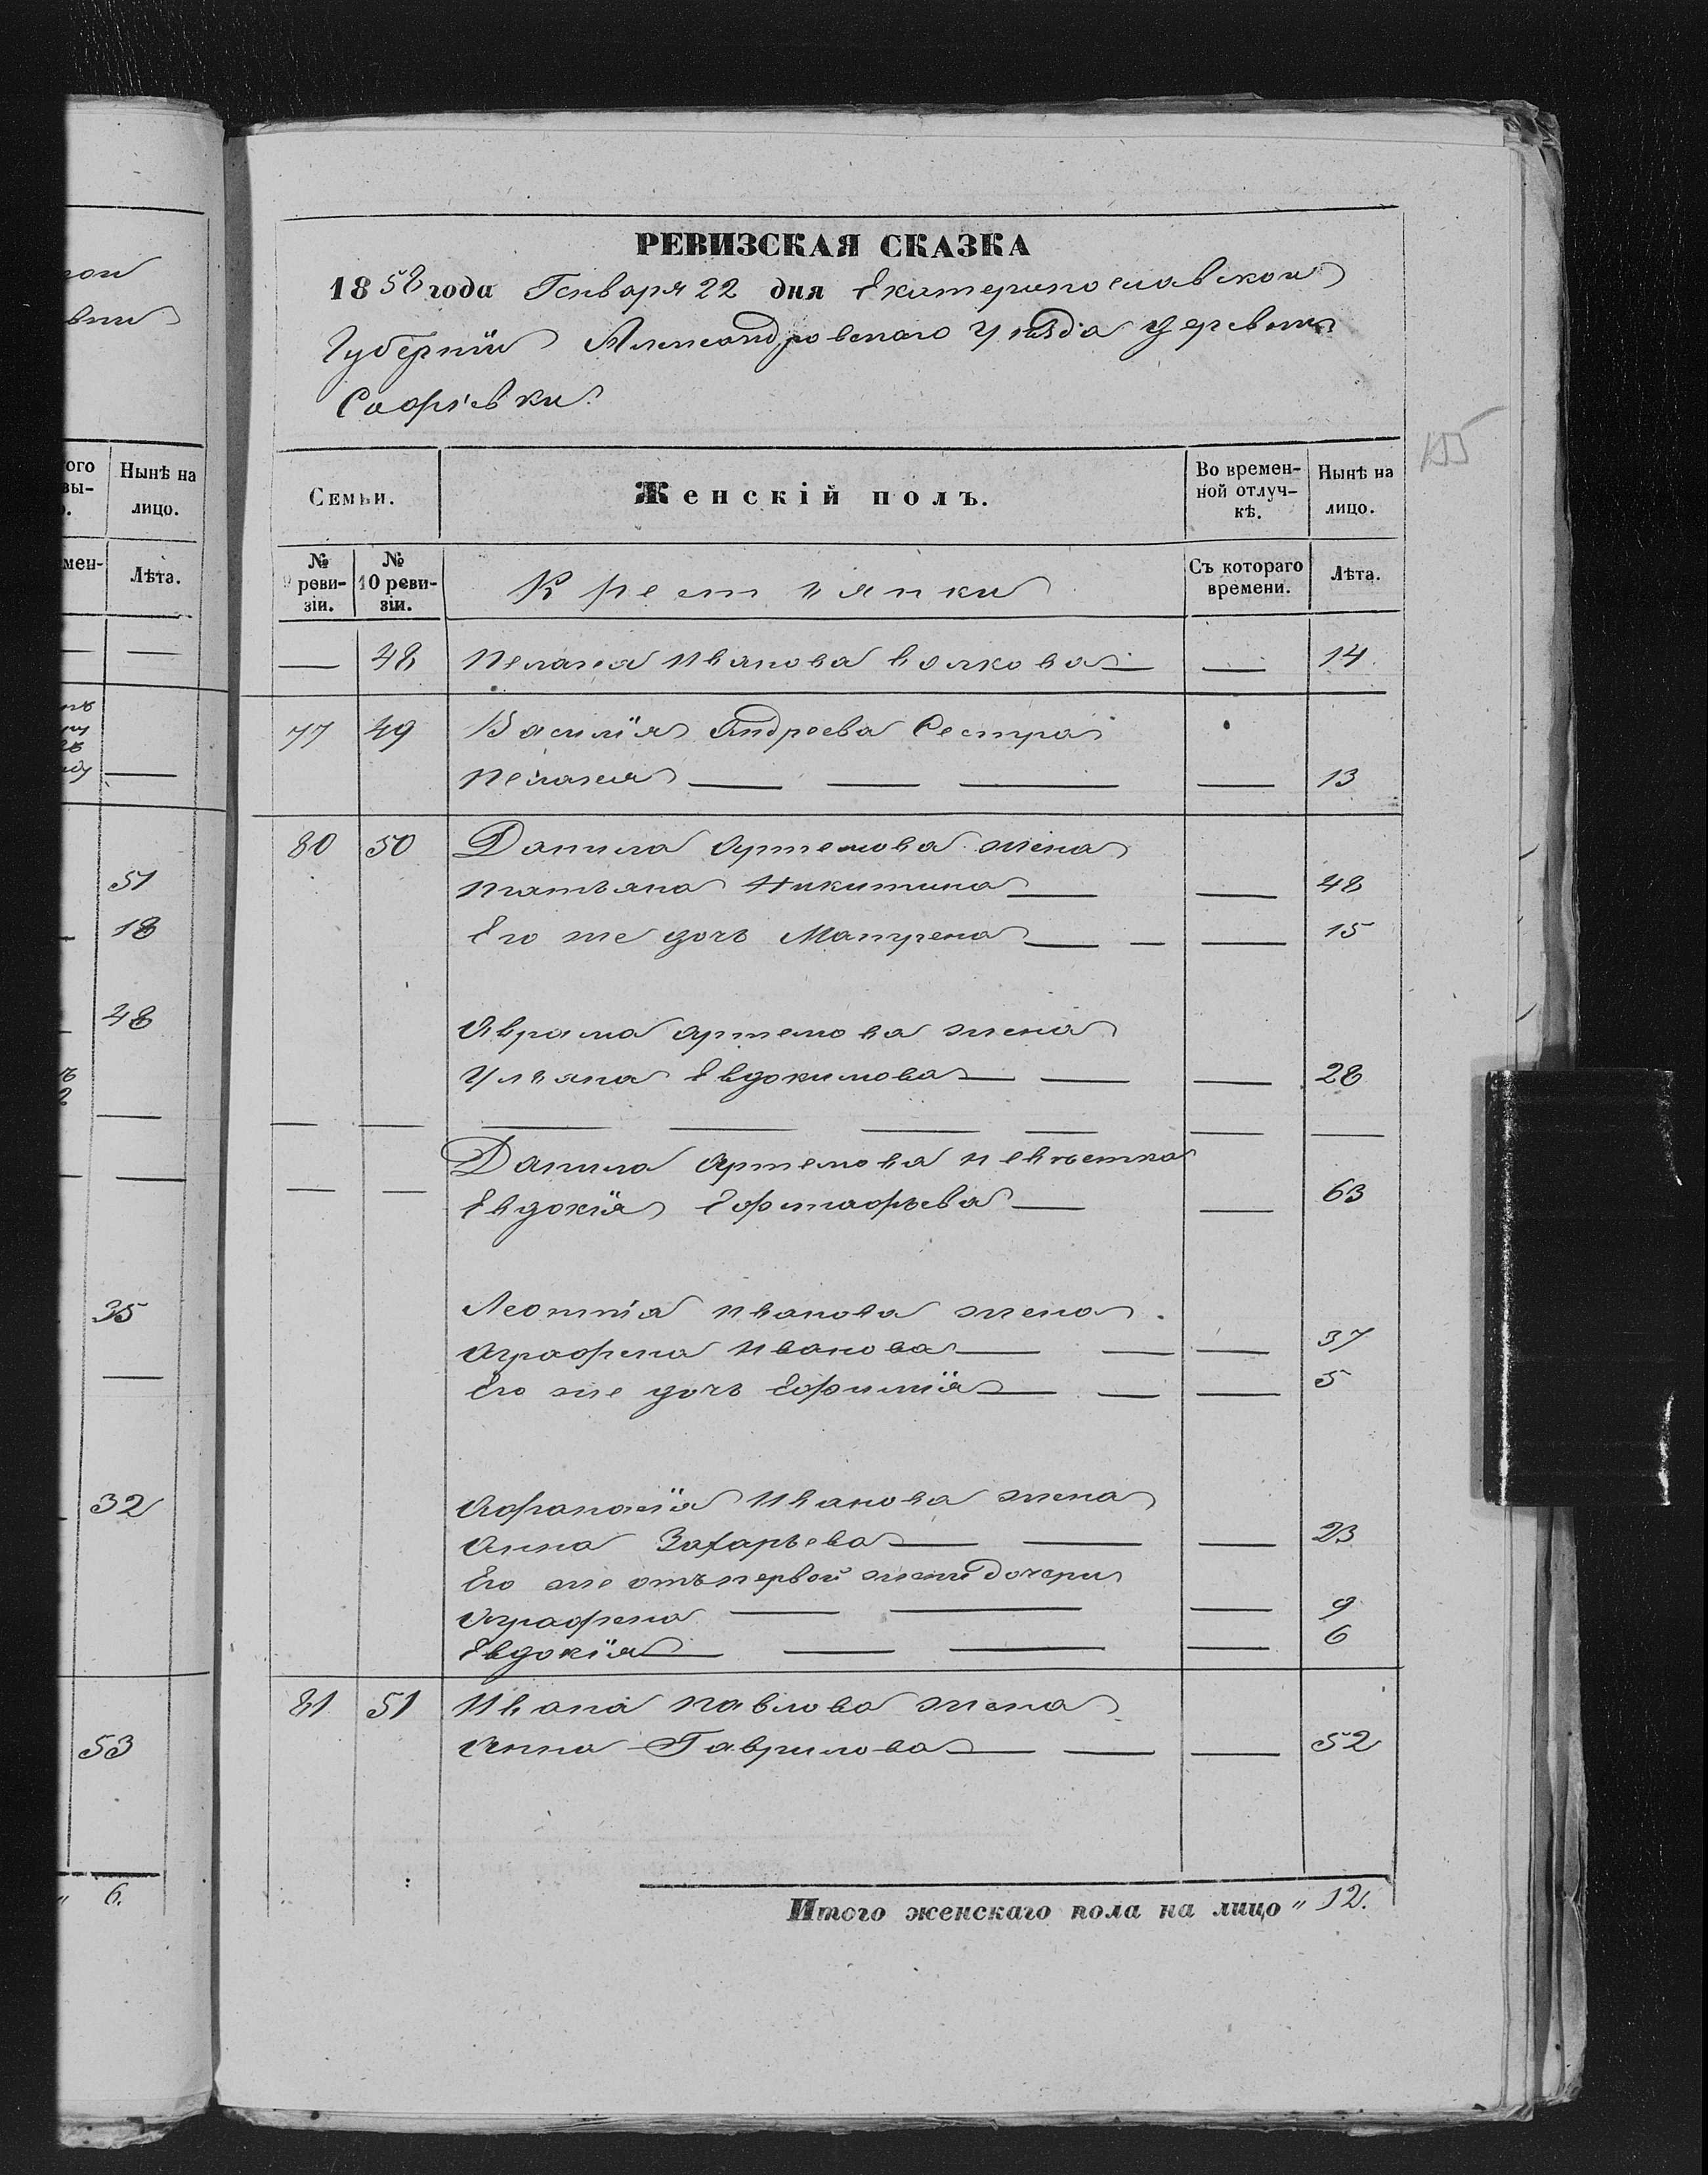 РЕВИЗСКАЯ СКАЗКА
1858 года Генваря 22 дня Екатеринославской
Губерніи Александровскаго Уѣзда деревни
Софіевки
155
Семьи.
Женскій полъ.
Во времен-
ной отлуч-
кѣ.
Нынѣ на
лицо.
№
9 реви-
зіи.
№
10 реви-
зіи.
Крестьянки
Съ котораго
времени.
Лѣта.
— 48 Пелагея Иванова Волкова — — 14
77 49 Василія Андреева Сестра
Пелагея — — — — 13
80 50 Данила Артемова жена
Татьяна Никитина — — 48
Его же дочь Матрена — — — 15
Аврама Артемова жена
Ульяна Евдокимова — — — 28
— — — — — — — —
Данила Артемова невѣстка
— — Евдокія Ефстафьева — — 63
Леонтія Иванова жена
Аграфена Иванова — — — 37
Его же дочь Ефимія — — — 5
Афанасія Иванова жена
Анна Захарьева — — — 23
Его же отъ первой жени дочери
Аграфена — — — 9
Евдокія — — — — 6
81 51 Ивана Павлова жена
Анна Гаврилова — — — 52
Итого женскаго пола на лицо „ 12.
ого
вы-
о.
Нынѣ на
лицо.
мен-
Лѣта.
51
18
48
35
32
53
„ 6.